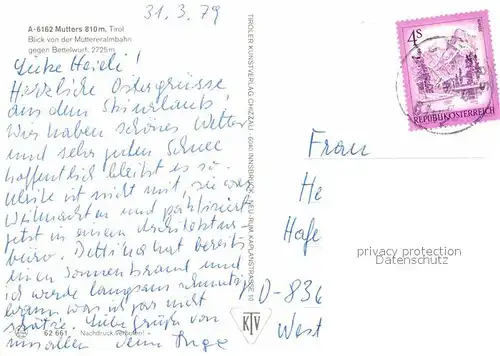 31.3.79
A-6162 Mutters 810 m, Tirol
Blick von der Muttereralmbahn
gegen Bettelwurf, 2725 m
Liebe Heidi!
Herzliche Ostergrüsse
aus dem Skiurlaub!
Wir haben schönes Wetter
und sehr guten Schnee
hoffentlich bleibt es so.
Ulrike ist nicht mit, sie war
Weihnachten und
jetzt in einem Architektur-
büro. hat bereits
einen Sonnenbrand und
ich werde langsam
braun was ich gar nicht
schätze. Liebe Grüße von
uns allen Deine Inge
62 661 Nachdruck verboten!
TIROLER KUNSTVERLAG CHIZZALI, 6040 INNSBRUCK - NEU-RUM, KAPLANSTRASSE 10
KTV
4 S
REPUBLIK ÖSTERREICH
Frau
He
Hafe
privacy protection
Datenschutz
D-836
West